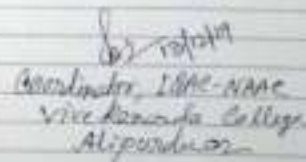 13/12/19
Coordinator, IQAC-NAAC
Vivekananda College
Alipurduar